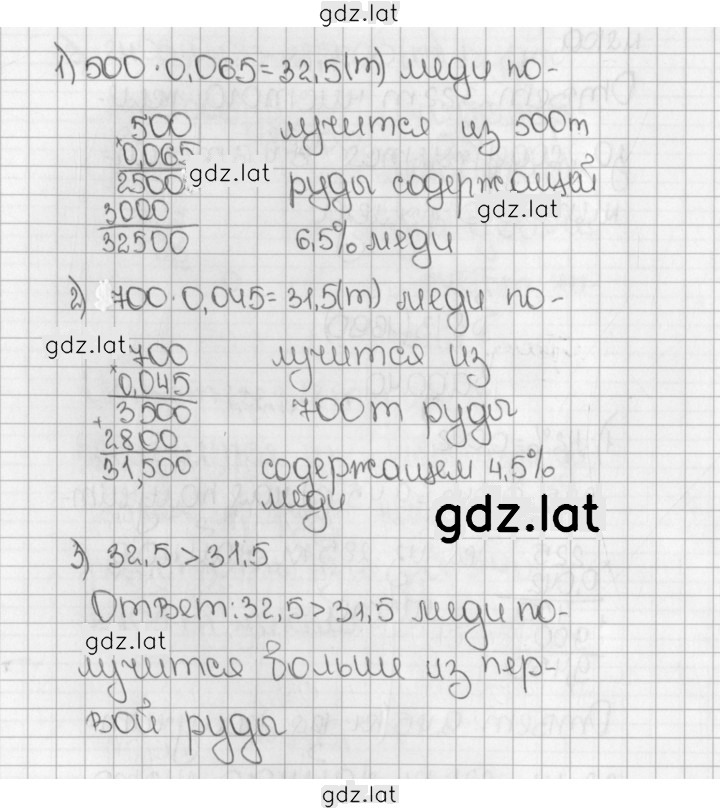 gdz.lat
1) 500 · 0,065 = 32,5(т) меди по-
500 лучится из 500т
×0,065 gdz.lat
2500 руды содержащей
3000 gdz.lat
32500 6,5% меди
2) 700 · 0,045 = 31,5(т) меди по-
gdz.lat 700 лучится из
×0,045
+3500 700т руды
2800
31,500 содержащем 4,5%
меди
gdz.lat
3) 32,5 > 31,5
Ответ: 32,5 > 31,5 меди по-
gdz.lat
лучится больше из пер-
вой руды
gdz.lat